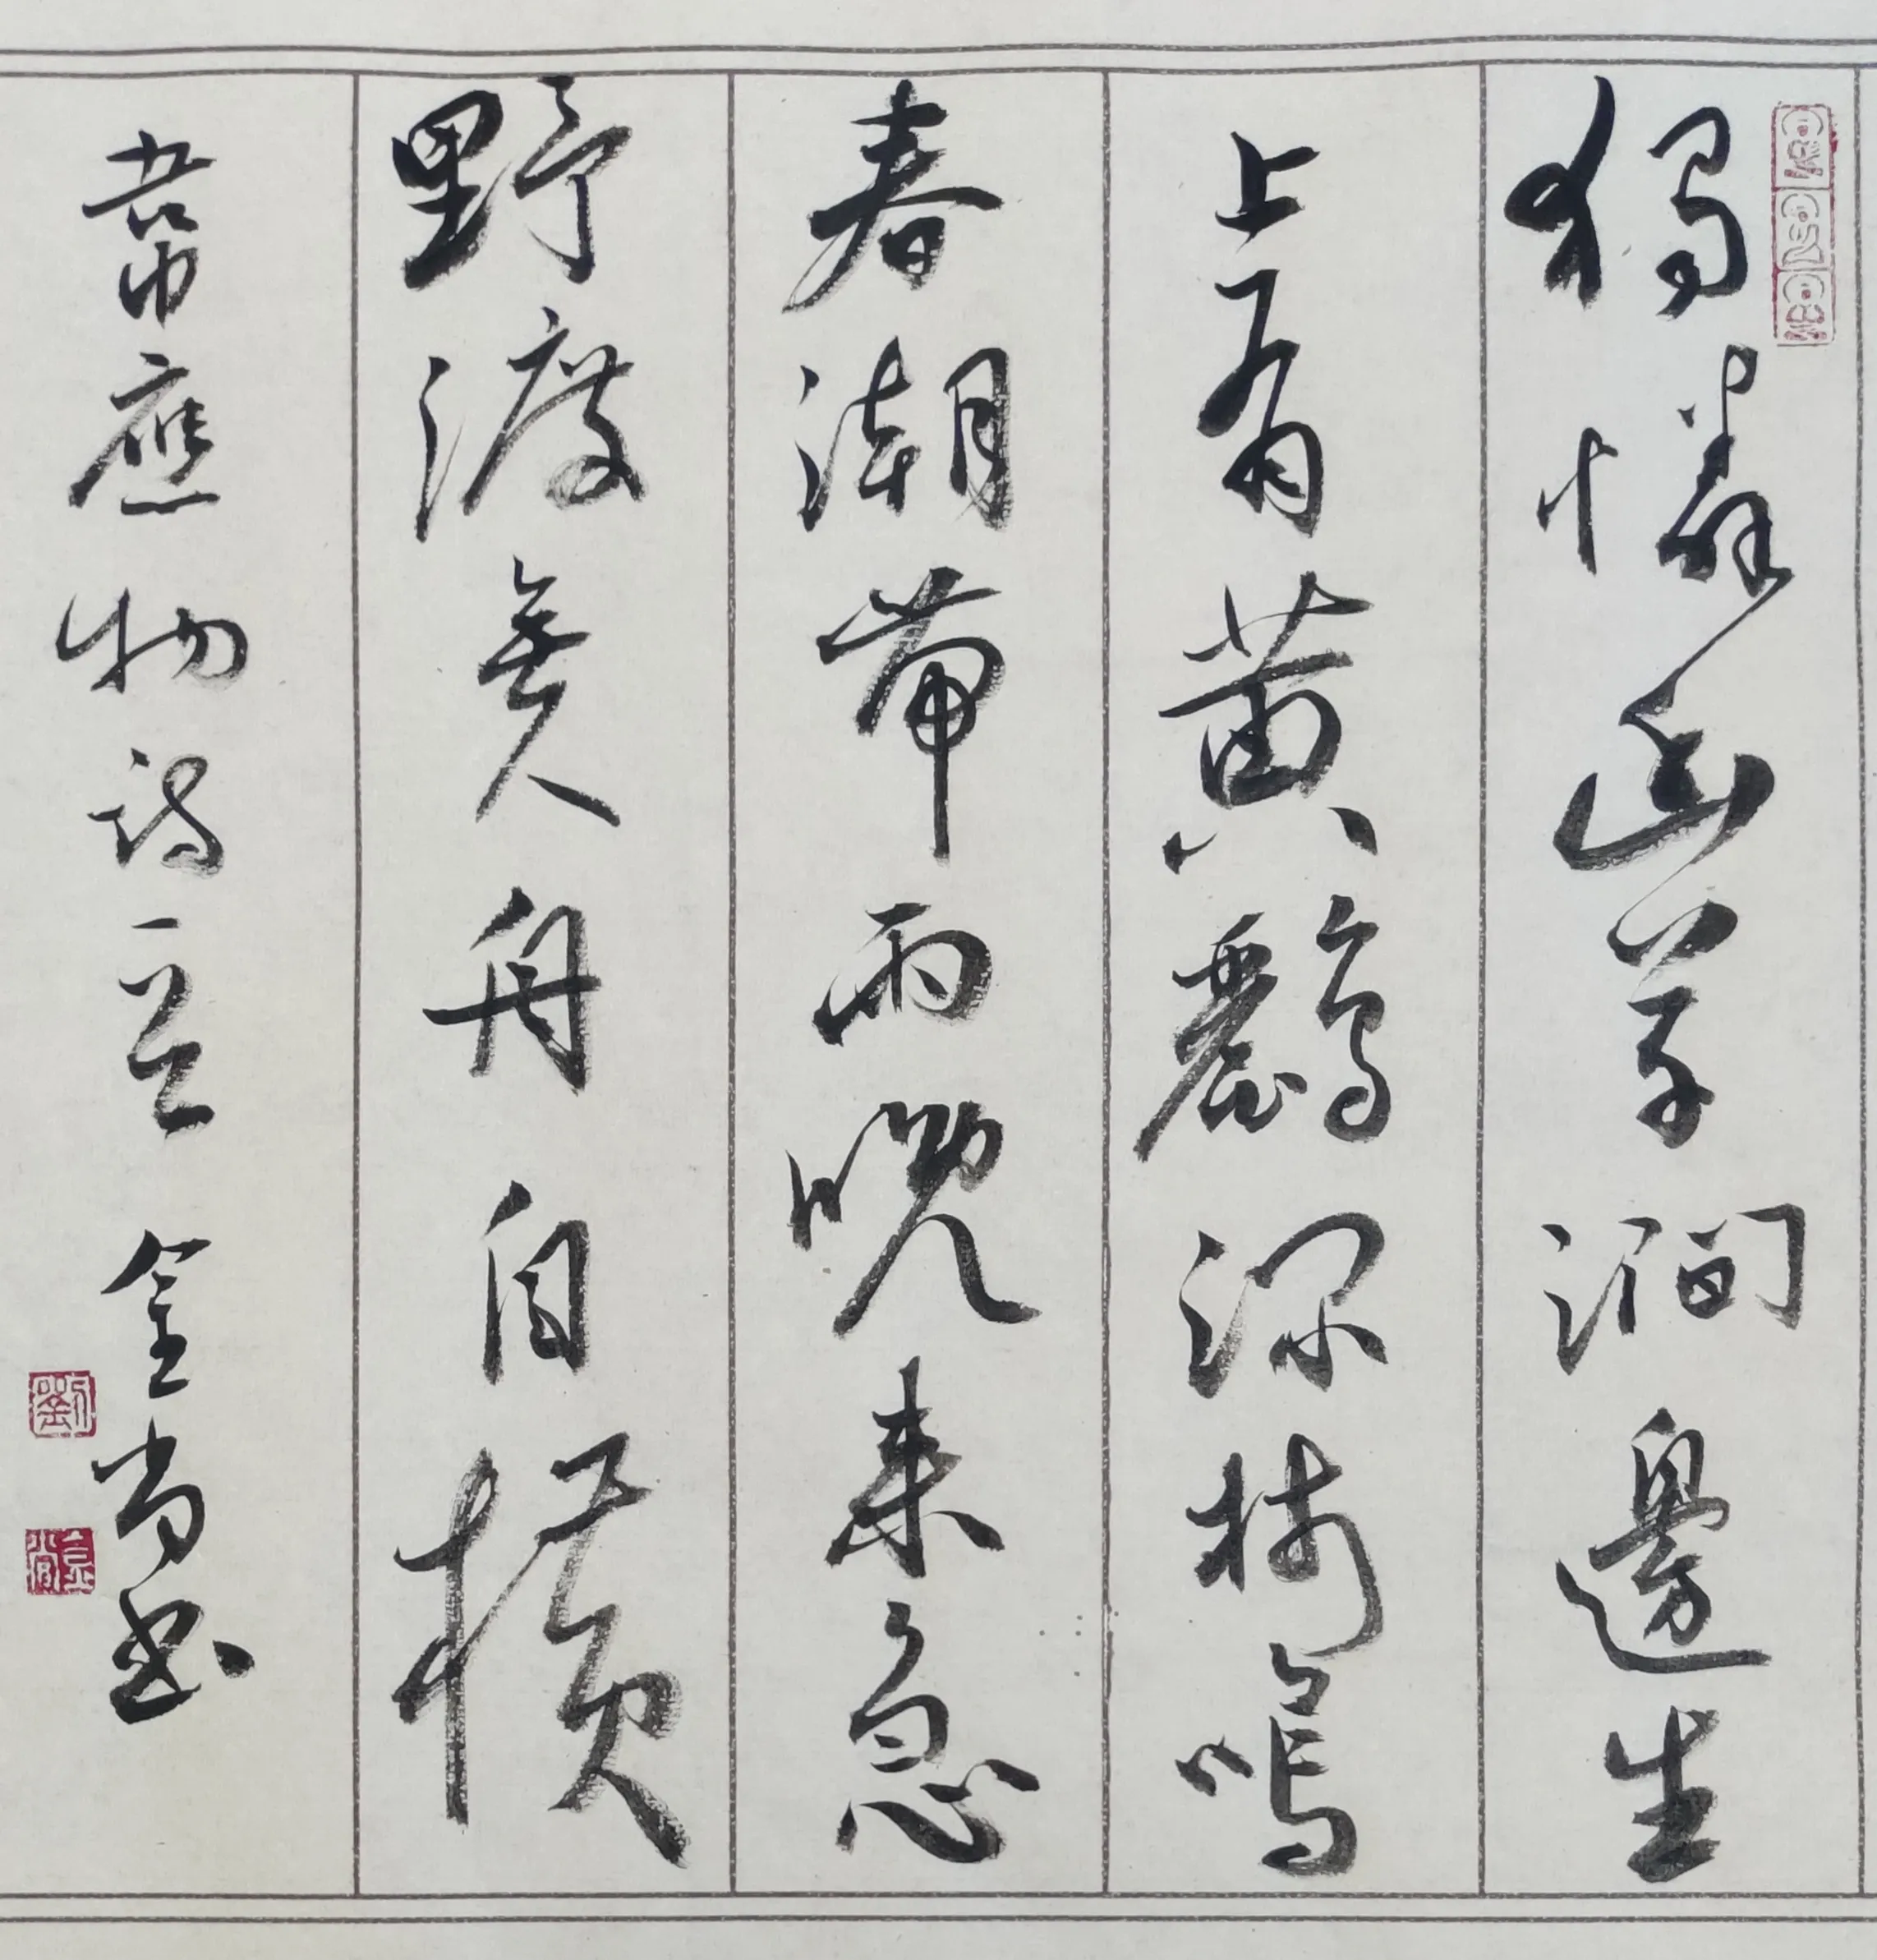 獨憐幽草澗邊生
上有黄鸝深樹鳴
春潮帶雨晚来急
野渡無人舟自横
韋應物詩一首 金尚書
劉